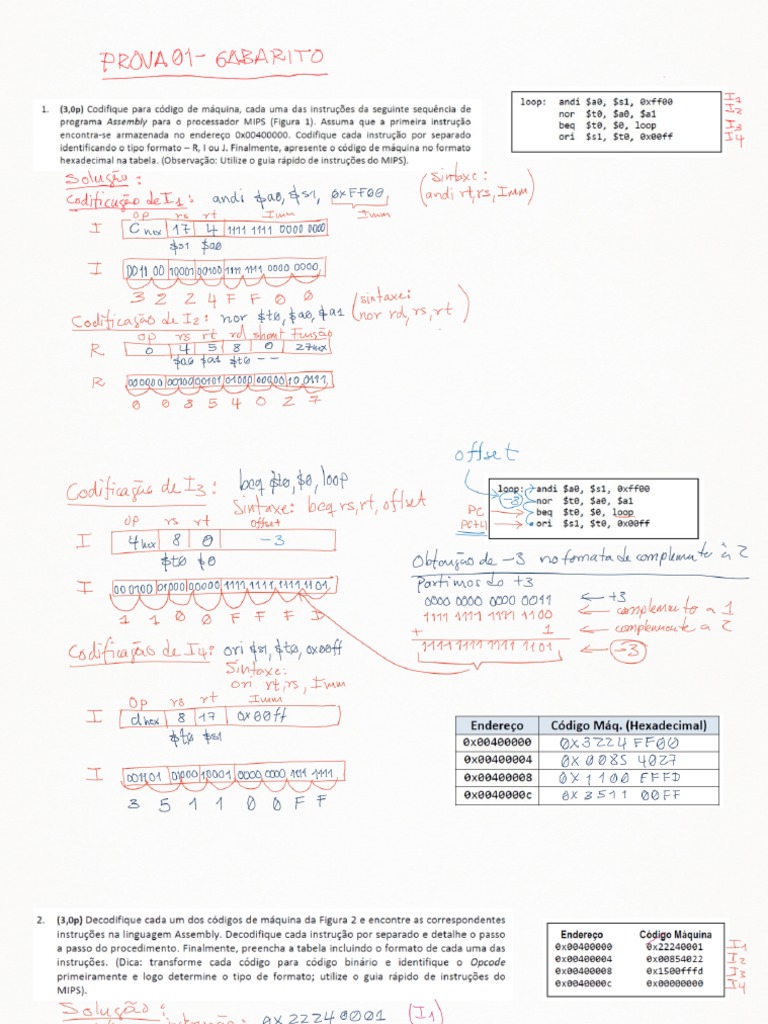 PROVA 01 - GABARITO
1. (3,0p) Codifique para código de máquina, cada uma das instruções da seguinte sequência de
programa Assembly para o processador MIPS (Figura 1). Assuma que a primeira instrução
encontra-se armazenada no endereço 0x00400000. Codifique cada instrução por separado
identificando o tipo formato – R, I ou J. Finalmente, apresente o código de máquina no formato
hexadecimal na tabela. (Observação: Utilize o guia rápido de instruções do MIPS).
loop: andi $a0, $s1, 0xff00 I1
nor $t0, $a0, $a1 I2
beq $t0, $0, loop I3
ori $s1, $t0, 0x00ff I4
Solução:
Codificação de I1: andi $a0, $s1, 0xFF00
Imm
(Sintaxe:
andi rt, rs, Imm)
Op rs rt Imm
I C hex 17 4 1111 1111 0000 0000
$s1 $a0
I 0011 00 10001 00100 1111 1111 0000 0000
3 2 2 4 F F 0 0
Codificação de I2: nor $t0, $a0, $a1
(sintaxe:
nor rd, rs, rt)
Op rs rt rd shamt Função
R 0 4 5 8 0 27hex
$a0 $a1 $t0 --
R 000000 00100 00101 01000 00000 10 0111
0 0 8 5 4 0 2 7
Codificação de I3: beq $t0, $0, loop
Sintaxe: beq rs, rt, offset
Op rs rt offset
I 4hex 8 0 -3
$t0 $0
I 000100 01000 00000 1111 1111 1111 1101
1 1 0 0 F F F D
offset
-3
PC
PC+4
loop: andi $a0, $s1, 0xff00
nor $t0, $a0, $a1
beq $t0, $0, loop
ori $s1, $t0, 0x00ff
Obtenção de -3 no formato de complemento à 2
Partimos do +3
0000 0000 0000 0011 ← +3
1111 1111 1111 1100 ← complemento a 1
+ 1 ← complemento a 2
1111 1111 1111 1101 ← -3
Codificação de I4: ori $s1, $t0, 0x00ff
Sintaxe:
ori rt, rs, Imm
Op rs rt Imm
I dhex 8 17 0x00ff
$t0 $s1
I 001101 01000 10001 0000 0000 1111 1111
3 5 1 1 0 0 F F
Endereço Código Máq. (Hexadecimal)
0x00400000 0X3224 FF00
0x00400004 0X0085 4027
0x00400008 0X1100 FFFD
0x0040000c 0X3511 00FF
2. (3,0p) Decodifique cada um dos códigos de máquina da Figura 2 e encontre as correspondentes
instruções na linguagem Assembly. Decodifique cada instrução por separado e detalhe o passo
a passo do procedimento. Finalmente, preencha a tabela incluindo o formato de cada uma das
instruções. (Dica: transforme cada código para código binário e identifique o Opcode
primeiramente e logo determine o tipo de formato; utilize o guia rápido de instruções do
MIPS).
Endereço Código Máquina
0x00400000 0x22240001 I1
0x00400004 0x00854022 I2
0x00400008 0x1500fffd I3
0x0040000c 0x00000000 I4
Solução:
0X22240001 (I1)